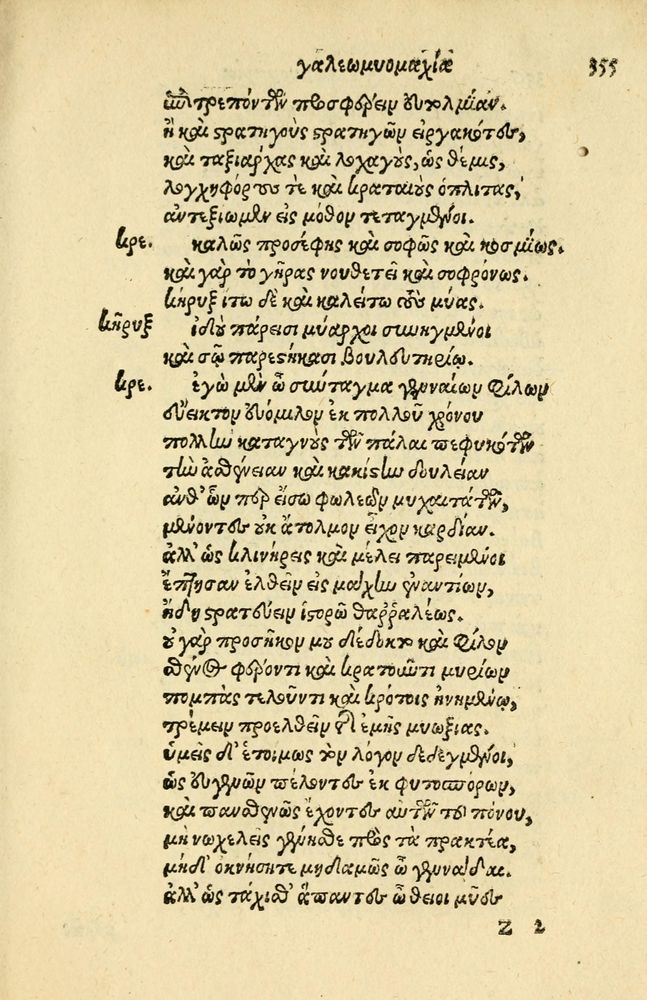 γαλεωμυομαχία 355
ἐπιτρεπόντων προσφέρειν εὐτολμίαν.
ἢ καὶ στρατηγοὺς στρατηγῶν εἰργακότες,
καὶ ταξιάρχας καὶ λοχαγούς, ὡς θέμις,
λογχηφόρους τὲ καὶ κραταιοὺς ὁπλίτας,
ἀντεξιῶμεν εἰς μόθον τεταγμένοι.
κρε. καλῶς προσέφης καὶ σοφῶς καὶ κοσμίως.
καὶ γὰρ τὸ γῆρας νουθετεῖ καὶ σοφρόνως.
κήρυξ ἴτω δὲ καὶ καλείτω τοὺς μύας.
κῆρυξ ἰδοὺ πάρεισι μύαρχοι συνηγμένοι
καὶ σῷ παρεστήκασι βουλευτηρίῳ.
κρε. ἐγὼ μὲν ὦ σύνταγμα γενναίων φίλων
σύεικτον εὐόμιλον ἐκ πολλοῦ χρόνου
πολλὴν καταγνοὺς τῶν πάλαι πεφυκότων
τὴν ἀσθένειαν καὶ κακίστην δουλείαν
ἀνθ' ὧν περ εἴσω φωλεῶν μυχαιτάτων,
μένοντες οὐκ ἄτολμον εἶχον καρδίαν.
ἀλλ' ὡς κλινήρεις καὶ μέλει παρειμένοι
ἔπτησαν ἐλθεῖν εἰς μάχην ἐναντίων,
ἤδη στρατεύειν ἱστορῶ θαῤῥαλέως.
οὐ γὰρ προσῆκον μου δέδοκτο καὶ φίλον
σθένος φέροντι καὶ κρατοῦντι μυρίων
πομπὰς τελοῦντι καὶ κρότοις ἠνημένῳ,
τρέμειν προελθεῖν τῆς ἐμῆς μυωξίας.
ὑμεῖς δ' ἑτοίμως τὸν λόγον δεδεγμένοι,
ὡς εὐγενῶν πέλοντες ἐκ φυτοσπόρων,
καὶ πανσθενῶς ἔχοντες αὐτῶν τοῦ πόνου,
μὴ νωχελεῖς γένησθε πρὸς τὰ πρακτέα,
μήδ' ὀκνήσητε μηδαμῶς ὦ γεννάδαι.
ἀλλ' ὡς τάχισθ' ἅπαντες ὦ θεῖοι μῦες
Z 2